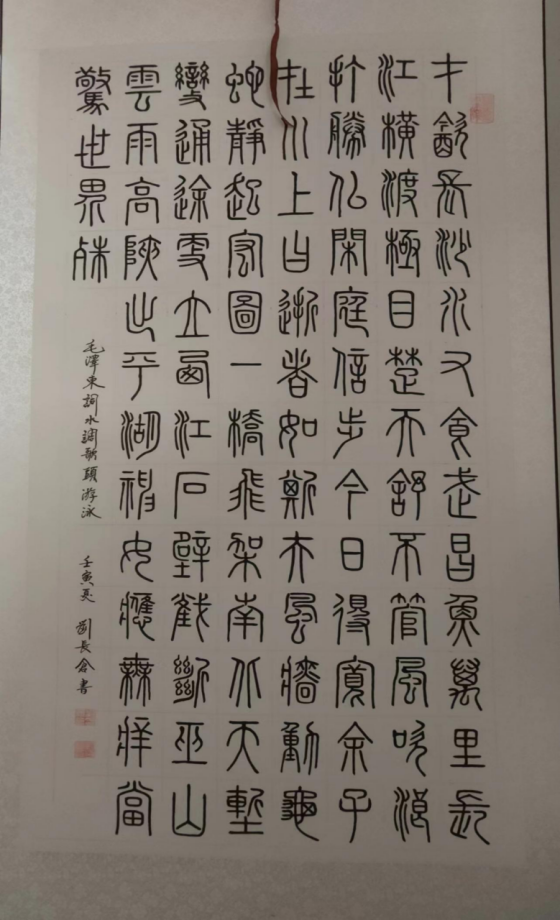 才飲長沙水又食武昌魚萬里長
江橫渡極目楚天舒不管風吹浪
打勝似閑庭信步今日得寬余子
在川上曰逝者如斯夫風檣動龜
蛇靜起宏圖一橋飛架南北天塹
變通途更立西江石壁截斷巫山
雲雨高峽出平湖神女應無恙當
驚世界殊
毛澤東詞水調歌頭游泳 壬寅夏 劉長倉書